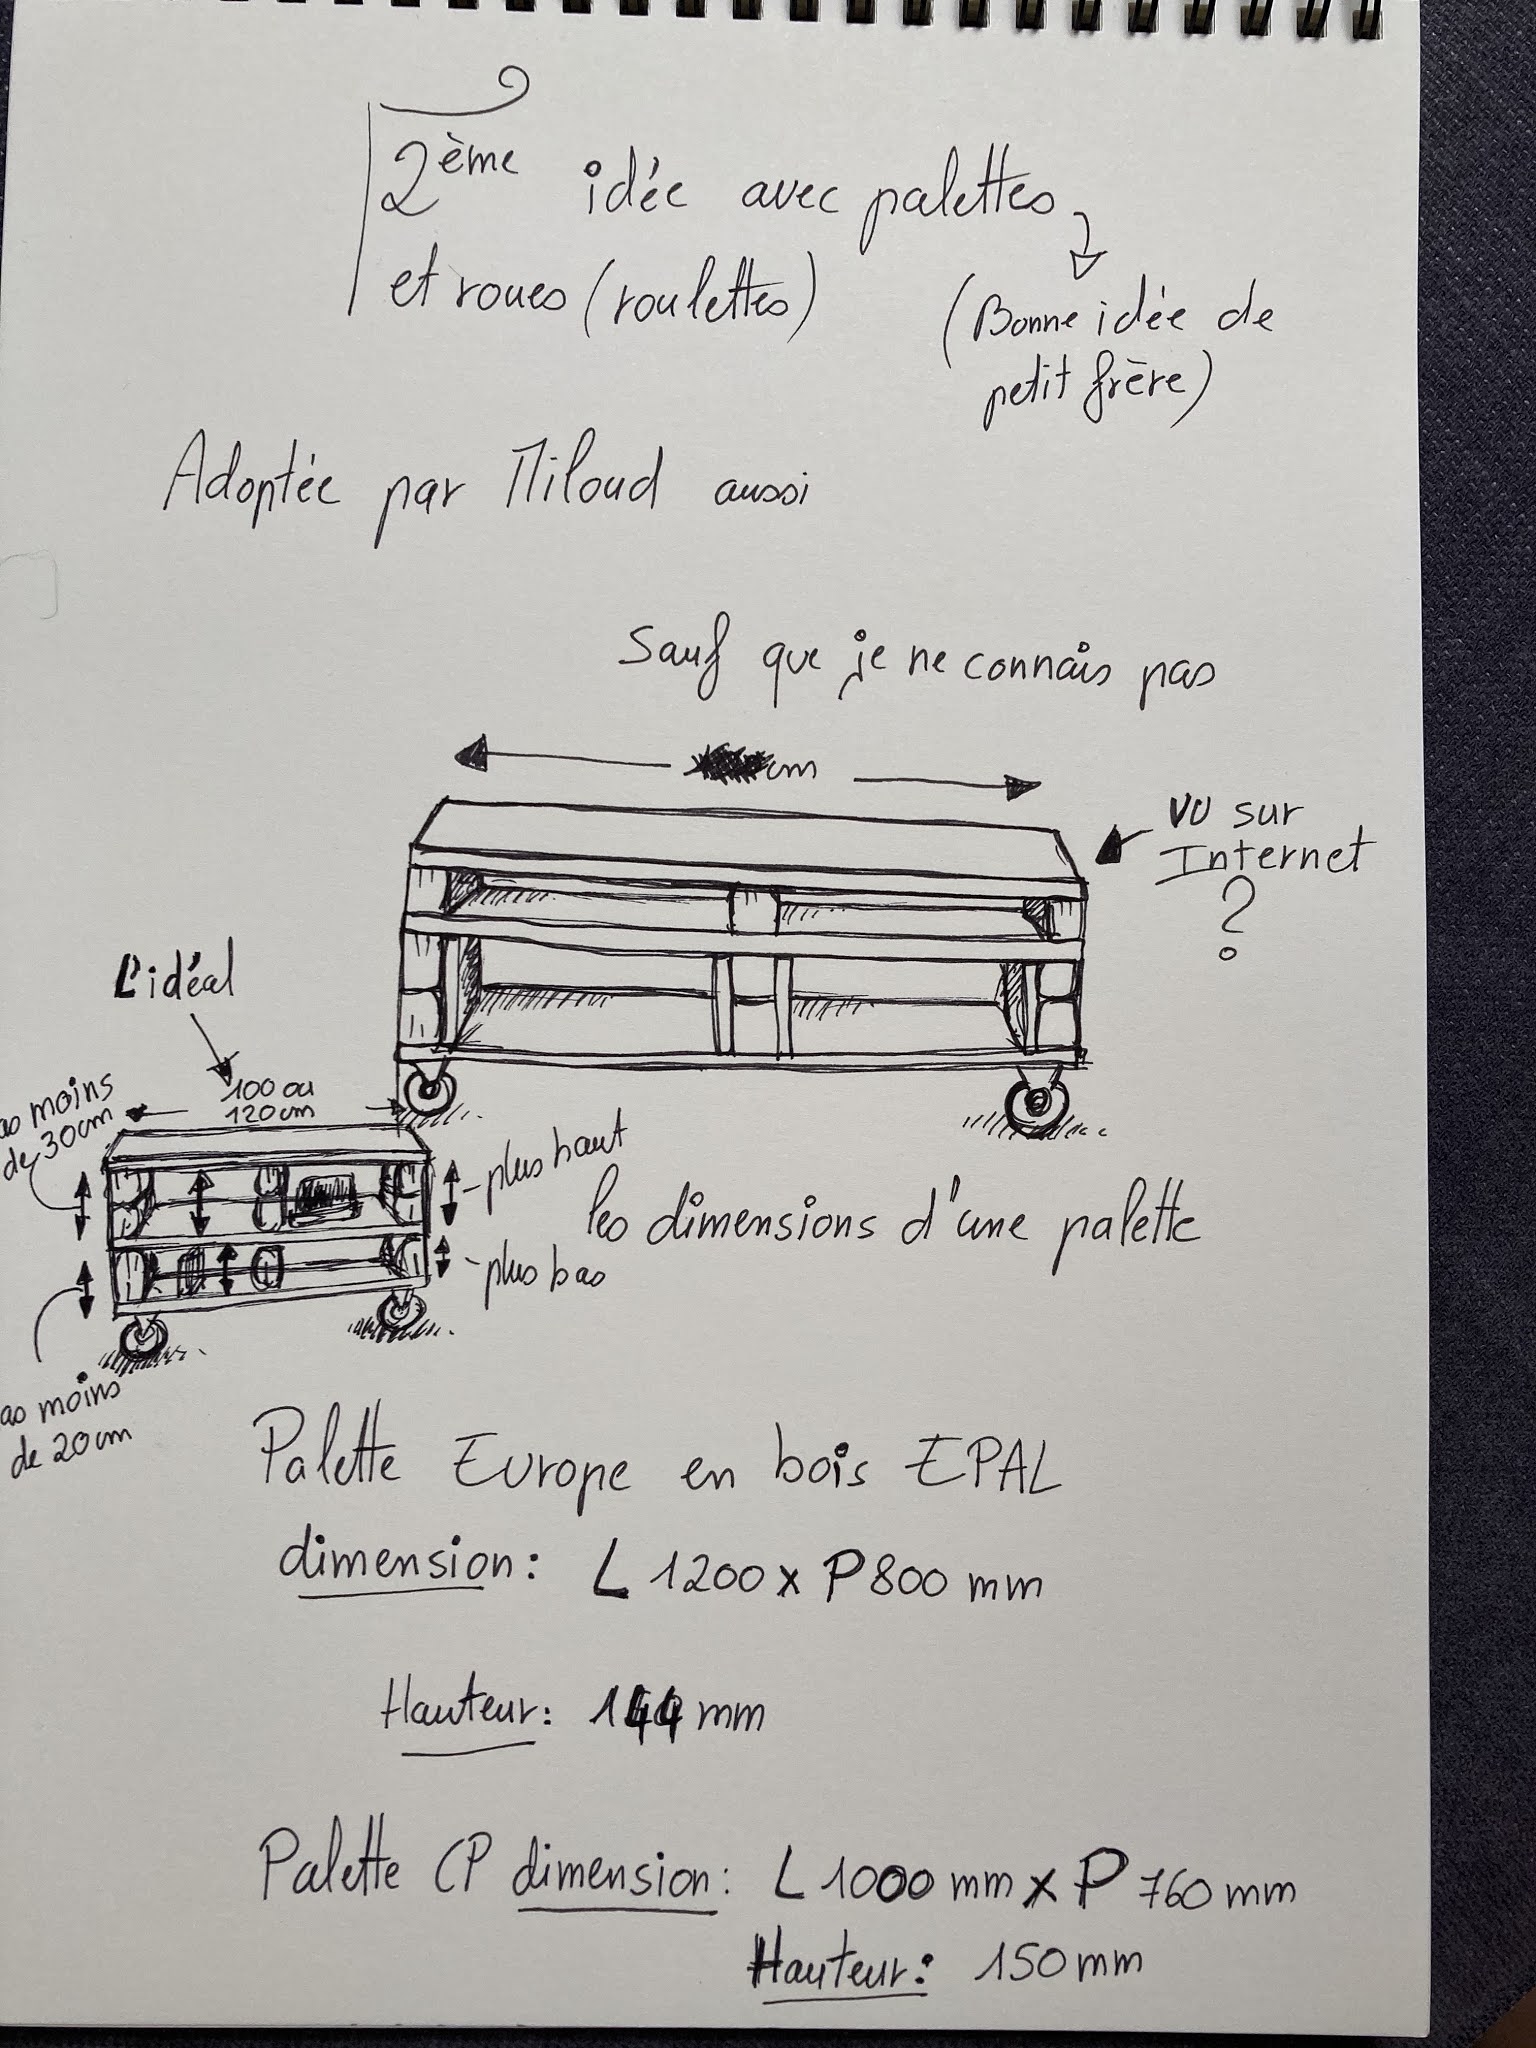 2ème idée avec palettes
et roues (roulettes)
(Bonne idée de
petit frère)
Adoptée par Miloud aussi
Sauf que je ne connais pas
cm
VU sur
Internet
?
L'idéal
100 ou
120cm
as moins
de 30cm
plus haut
plus bas
les dimensions d'une palette
as moins
de 20cm
Palette Europe en bois EPAL
dimension: L 1200 x P 800 mm
Hauteur: 144 mm
Palette CP dimension: L 1000 mm x P 760 mm
Hauteur: 150 mm